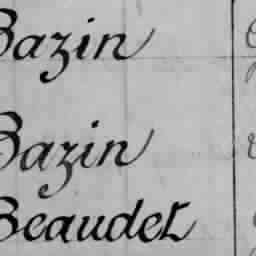 Bazin
Bazin
Beaudet